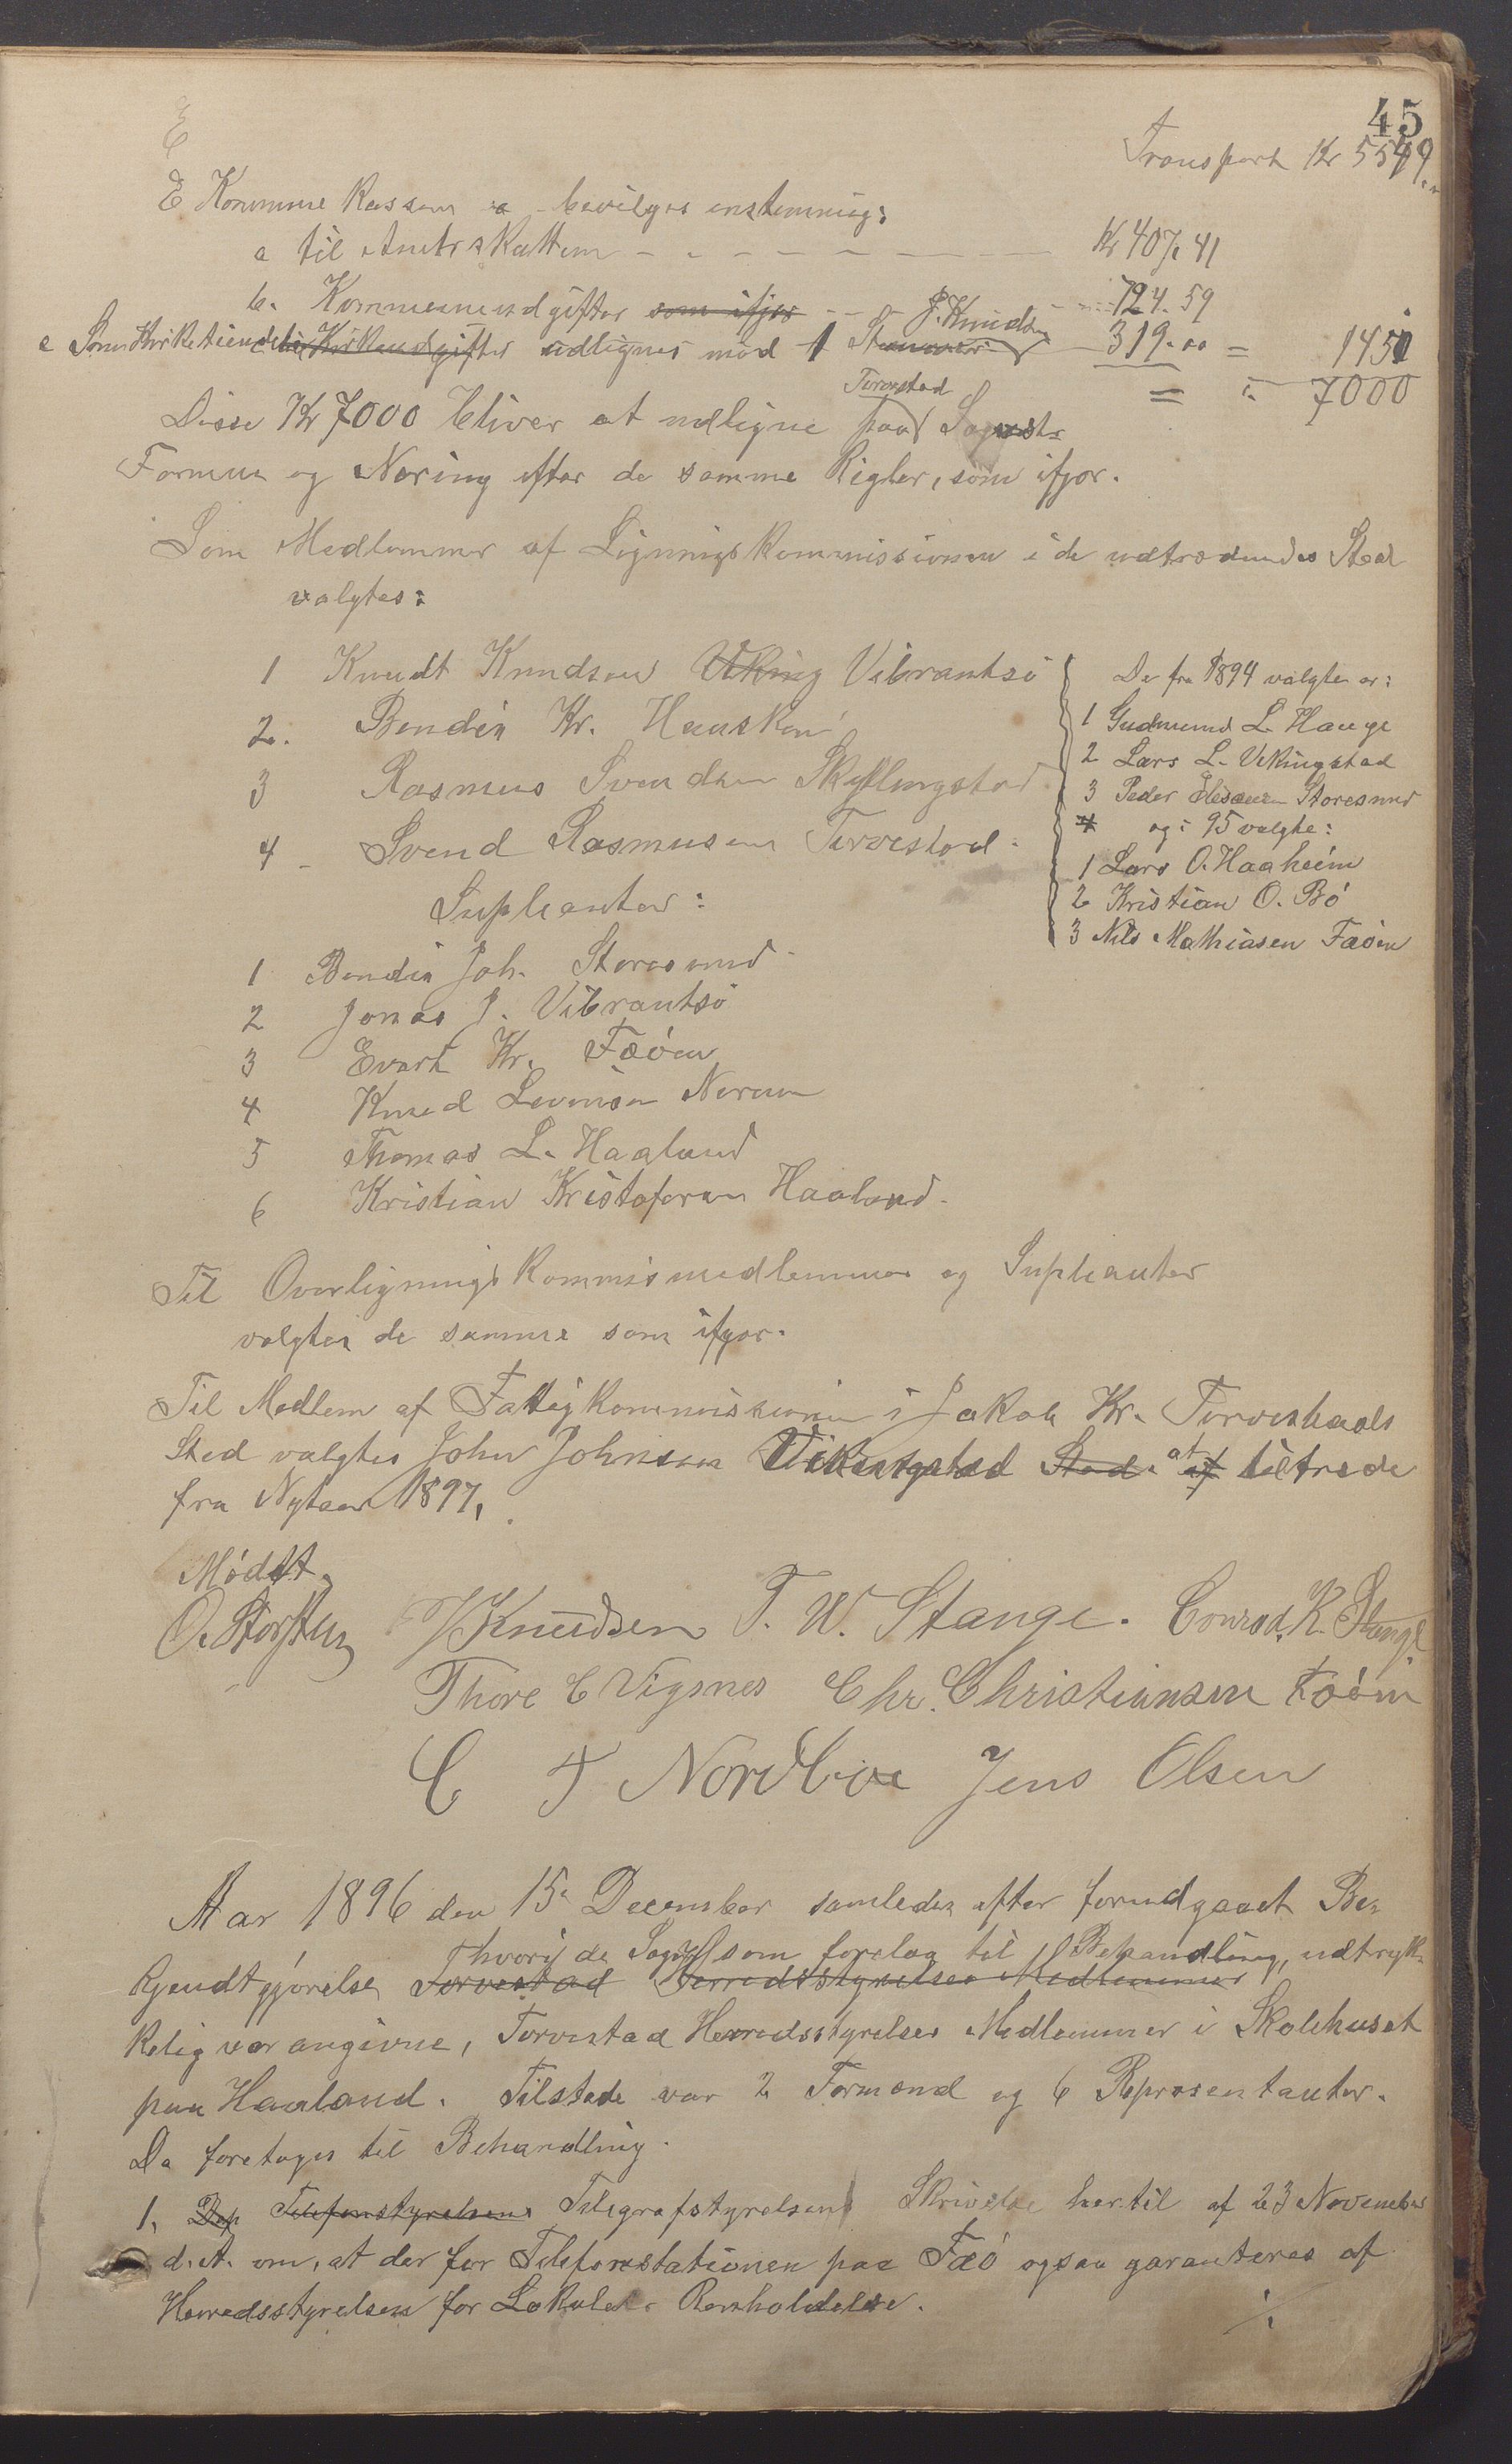 45
Transport Kr 5549
E
E Kommune Kassen a bevilges enstemmig:
a til Amtsskatten - - - - - Kr 407.41
b. Kommuneudgifter som ifjor - - - 724.59
J. Knudsen
c Som Kirketiende til Kirkeudgifter udlignes mod 1 Stemme 319.00 = 1451
= " 7000
Torvestad
Disse Kr 7000 bliver at udligne paa Sogns
Formue og Næring efter de samme Regler, som ifjor.
Som Medlemmer af Ligningskommissionen i de udtrædendes Sted
valgtes:
1 Knudt Knudsen Viking Vibrantsö
2. Bendix Kr. Hausken
3 Rasmus Svendsen Skjtlingstad
4 - Svend Rasmusen Torvestad.
De fra 1894 valgte er:
1 Gudmund L. Hauge
2 Lars L. Vikingstad
3 Peder Eliesen Storesund
4 og i 95 valgte:
1 Lars O. Haaheim
2 Kristian O. Bö
3 Nils Mathiasen Fæöen
Supleanter:
1 Bendix Joh. Storesund
2 Jonas J. Vibrantsö
3 Evert Kr. Fæöen
4 Knud Sevrinsen Norem
5 Thomas L. Haaland
6 Kristian Kristofersen Haaland.
Til Overligningskommismedlemmer og Supleanter
valgtes de samme som ifjor.
Til Medlem af Fattigkommissionen i Jakob Kr. Torvestads
Sted valgtes John Johnsen Vikingstad Sted. af at tiltræde
fra Nytaar 1897.
Mödet
O. Storsten J Knudsen T. W. Stange. Conrad. K. Stange
Thore C Vigsnes Chr. Christiansen Fæöen
C T Nordboe Jens Olsen
Aar 1896 den 15. December samledes efter forudgaaet Be-
hvori de Sager som forelaa til Behandling, udtryk-
kjendtgjörelse, Torvestad Herredsstyrelses Medlemmer
kelig var angivne, Torvestad Herredsstyrelses Medlemmer i Skolehuset
paa Haaland. Tilstede var 2 Formænd og 6 Repræsentanter.
Da foretages til Behandling.
1. Dep Telefonstyrelsens Telegrafstyrelsens Skrivelse hertil af 23 November
d. A. om, at der for Telefonstationen paa Fæö ogsaa garanteres af
Herredsstyrelsen for Lokalets Renholdelse.
./.